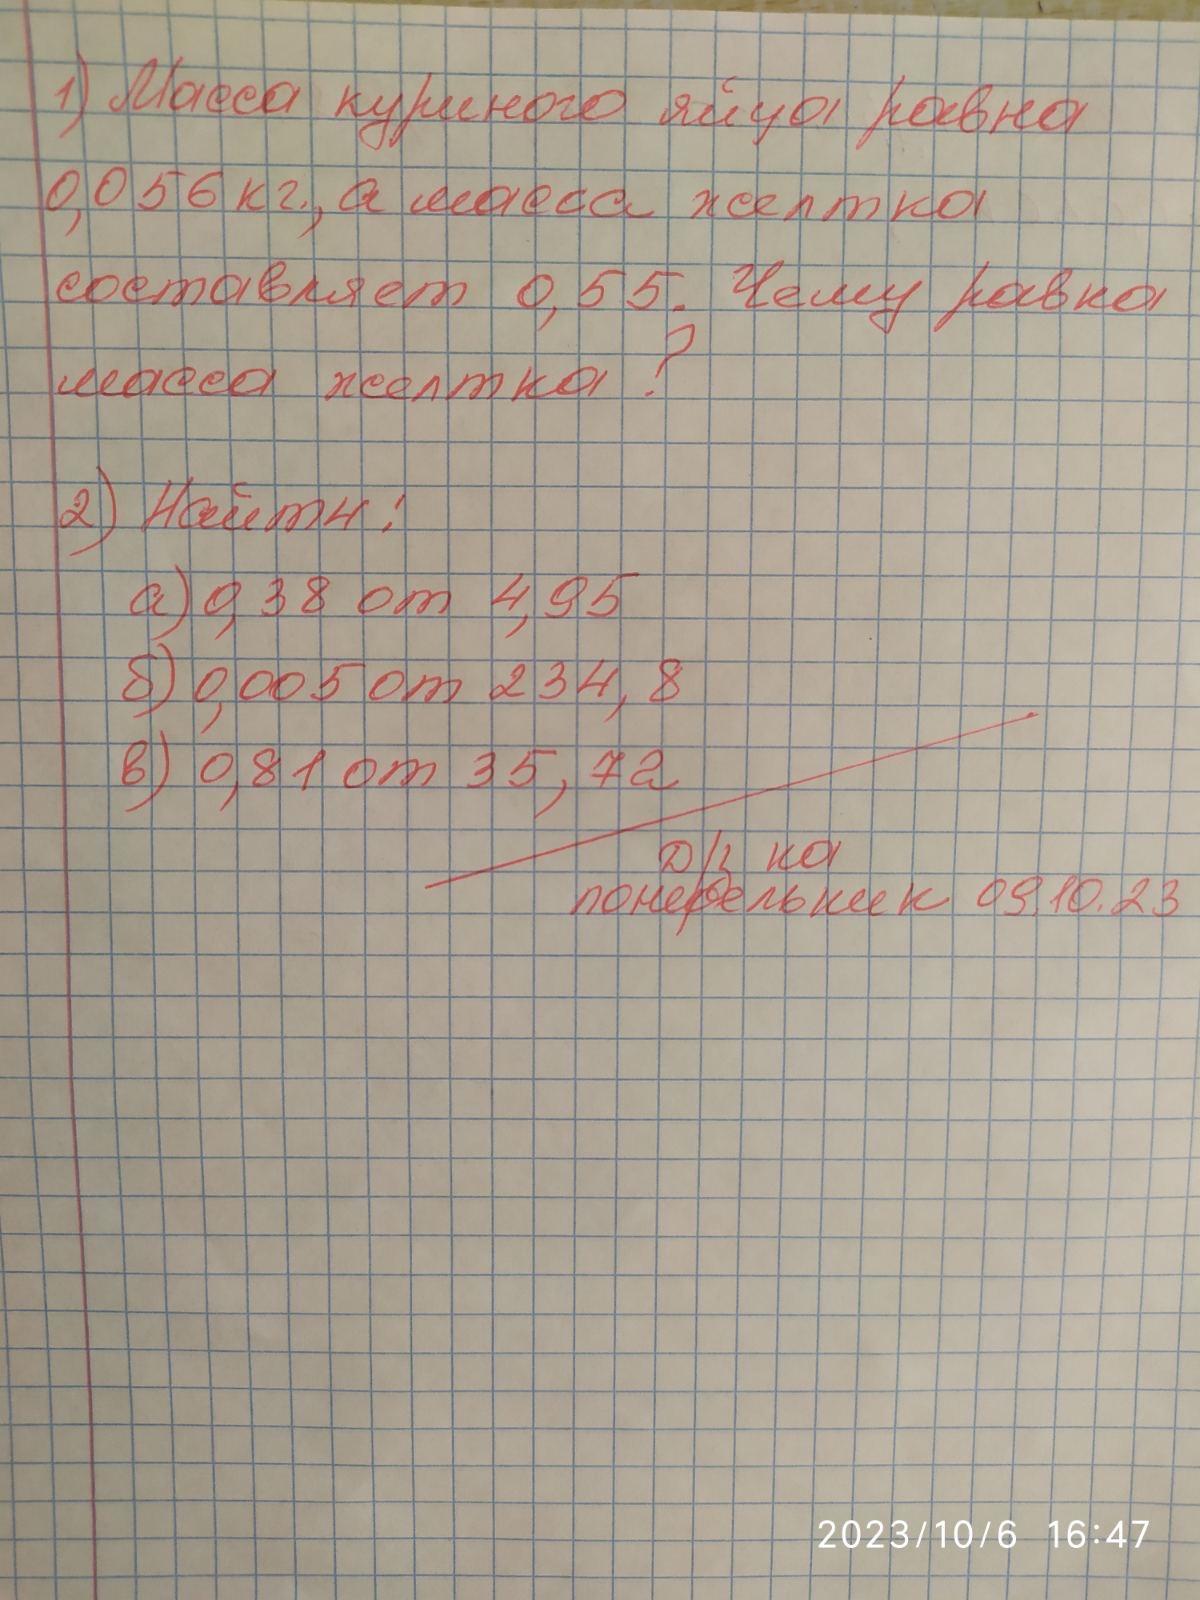 1) Масса куриного яйца равна
0,056 кг., а масса желтка
составляет 0,55. Чему равна
масса желтка?
2) Найти:
а) 0,38 от 4,95
б) 0,005 от 234,8
в) 0,81 от 35,72
Д/з на
понедельник 09.10.23
2023/10/6 16:47